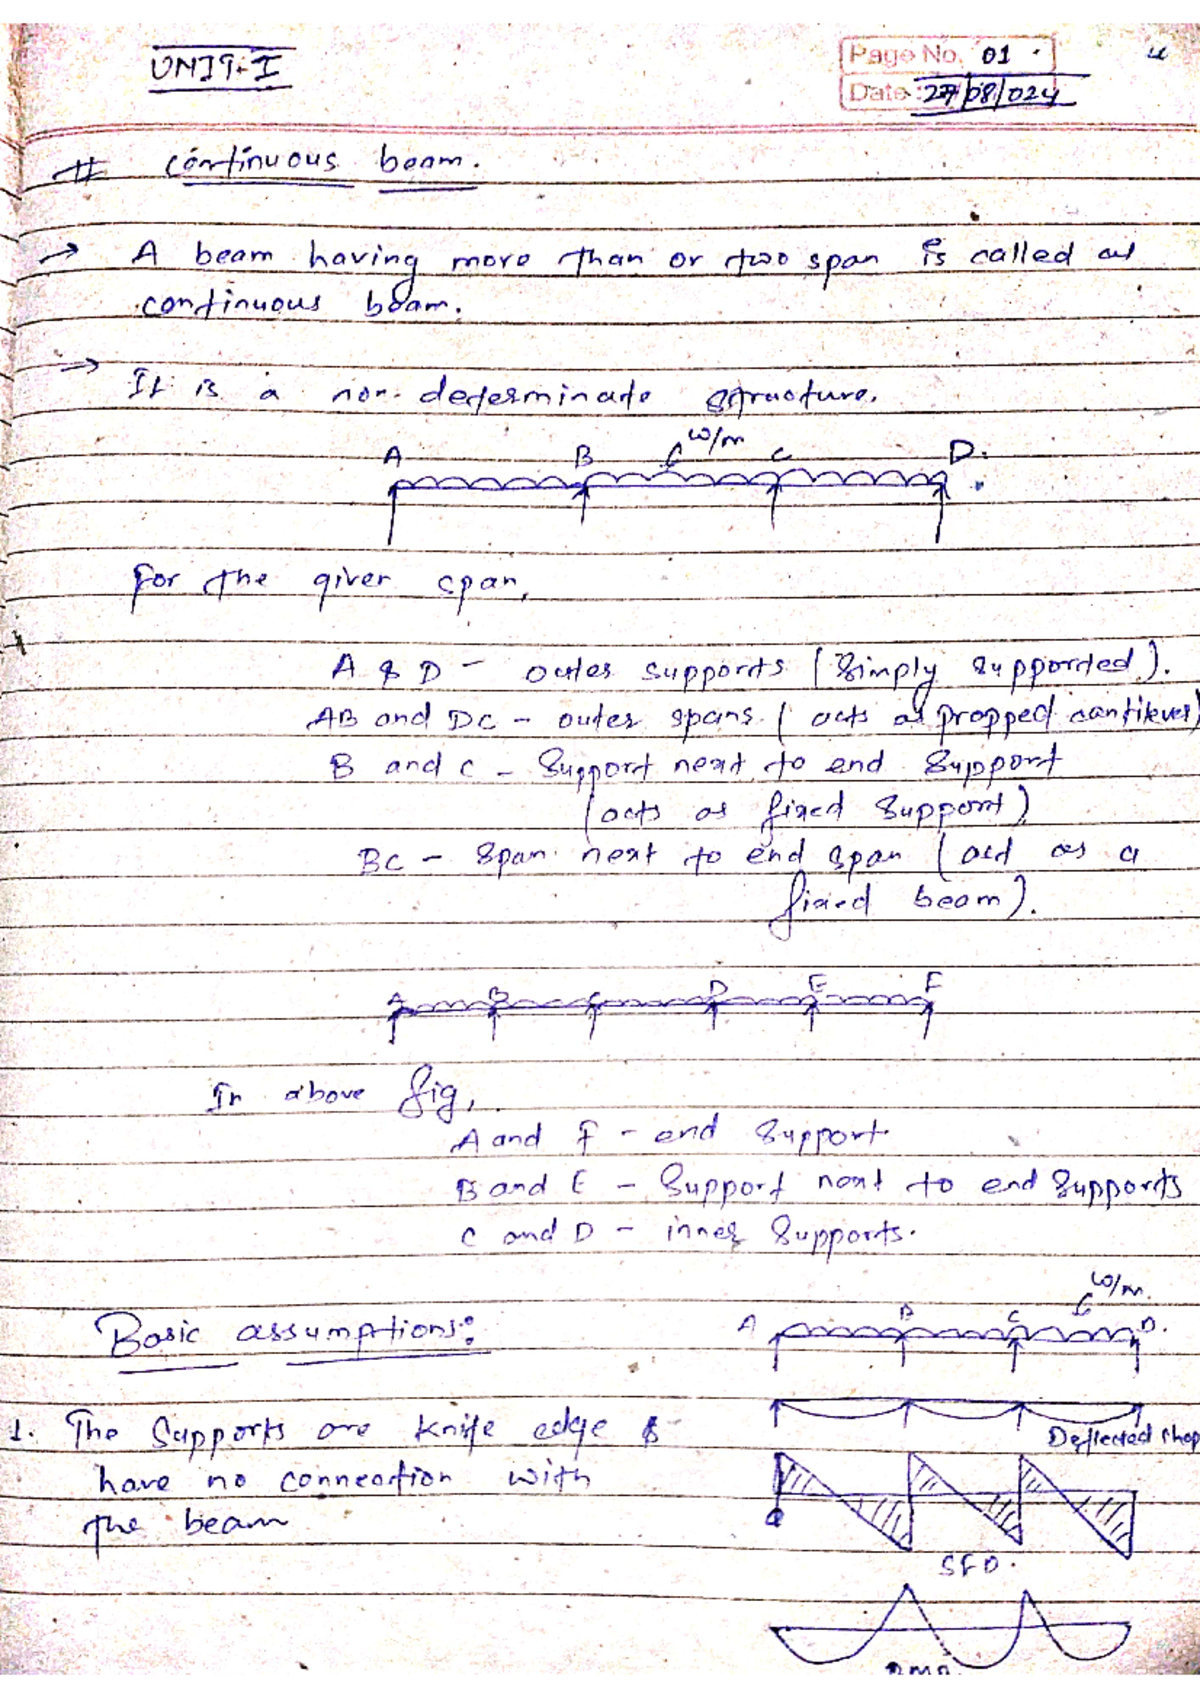 UNIT-I
Page No. 01
Date: 27/08/024
# Continuous beam.
→ A beam having more than or two span is called as
continuous beam.
→ It is a non-determinate structure.
w/m
A B C D.
For the given span,
A & D - outer supports (Simply supported).
AB and DC - outer spans (acts as propped cantilever)
B and C - Support next to end Support
(acts as fixed support)
BC - Span next to end span (act as a
fixed beam).
A B C D E F
In above fig,
A and F - end support
B and E - Support next to end supports
C and D - inner supports.
w/m.
A B C D.
Basic assumptions:
1. The Supports are knife edge &
have no connection with
the beam
Deflected shap
SFD.
BMD.